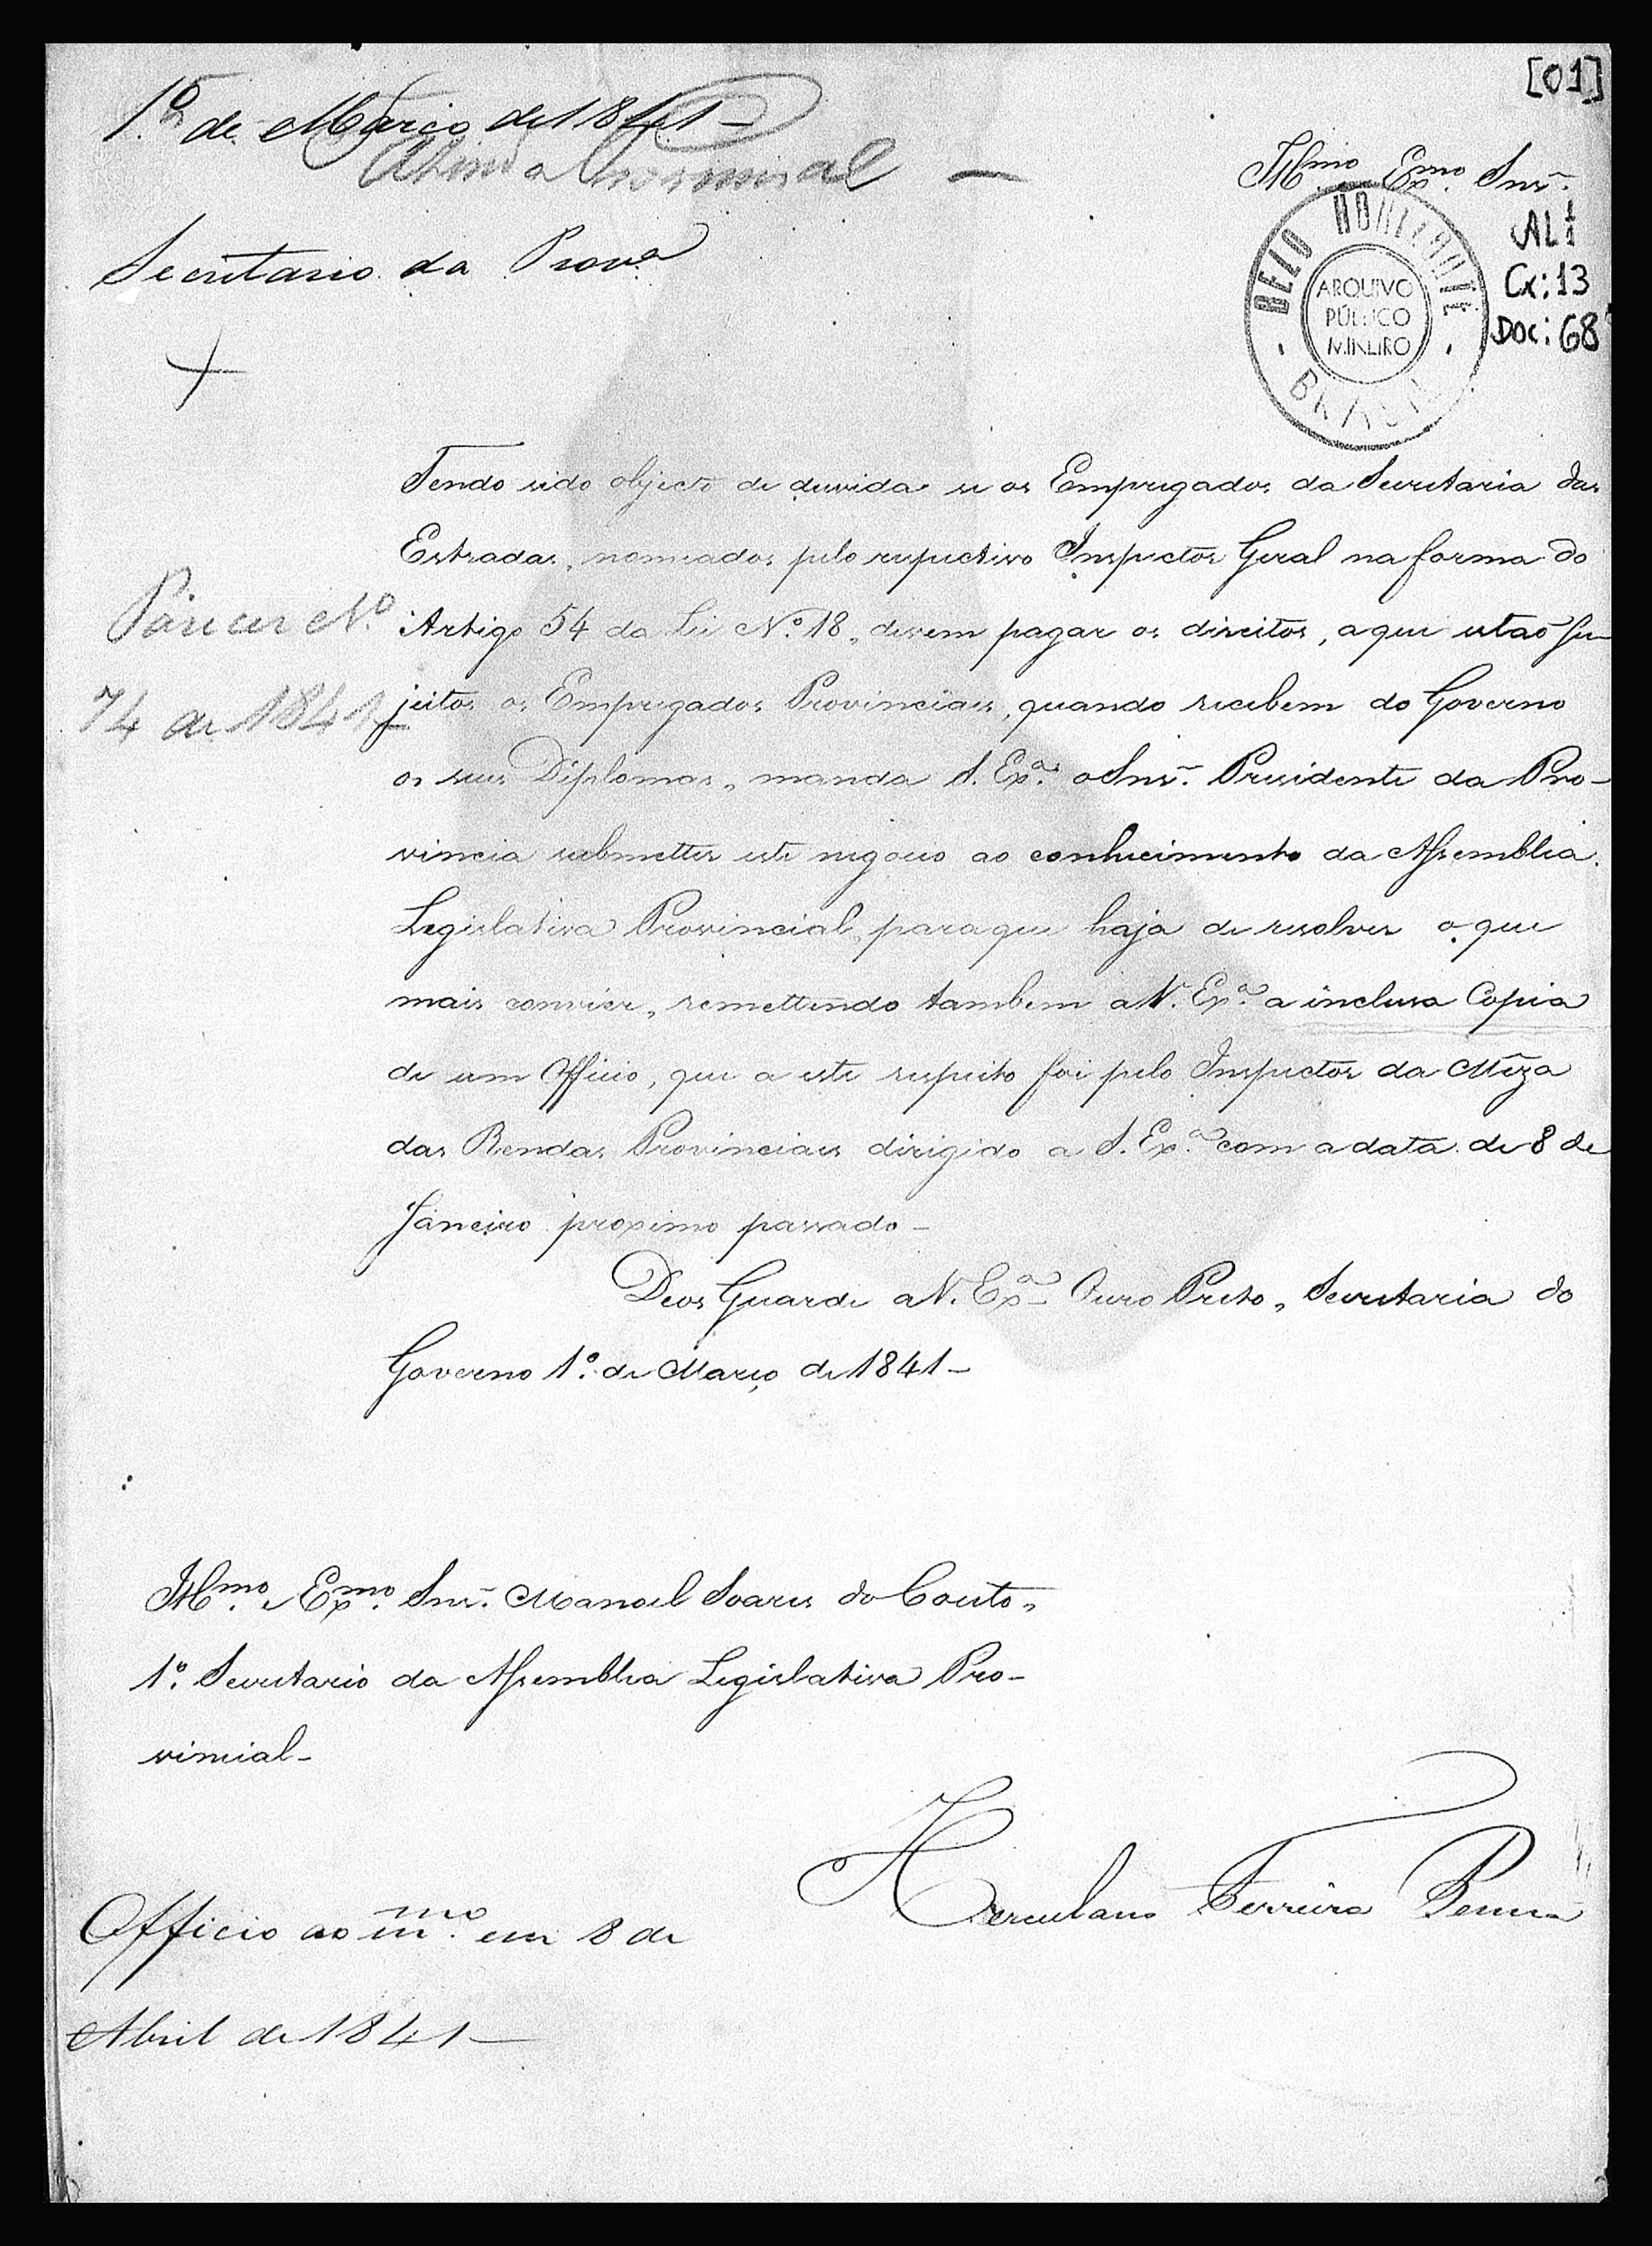 [01]
1º de Março de 1841-
Illmo Exmo Snr.
Secretario da Prova
BELO HORIZONTE
ARQUIVO
PÚBLICO
MINEIRO
BRASIL
AL 1/1
Cx: 13
Doc: 68
Tendo sido objecto de duvida se os Empregados da Secretaria das
Estradas, nomeados pelo respectivo Inspector Geral na forma do
Artigo 54 da Lei Nº 18, devem pagar os direitos, a que estaõ su-
jeitos os Empregados Provinciaes, quando recebem do Governo
os seus Diplomas, manda S. Exa. o Snr. Presidente da Pro-
vincia submetter este negocio ao conhecimento da Assemblea
Legislativa Provincial, para que haja de resolver o que
mais convier, remettendo tambem a V. Exa. a inclusa Copia
de um Officio, que a este respeito foi pelo Inspector da Meza
das Rendas Provinciaes dirigido a S. Exa. com a data de 8 de
Janeiro proximo passado-
Parecer Nº
74 de 1841
Deos Guarde a V. Exa. Ouro Preto, Secretaria do
Governo 1º de Março de 1841-
Illmo. e Exmo. Snr. Manoel Soares do Couto,
1º Secretario da Assemblea Legislativa Pro-
vincial-
Herculano Ferreira Penna
Officio ao mmo. em 8 de
Abril de 1841-